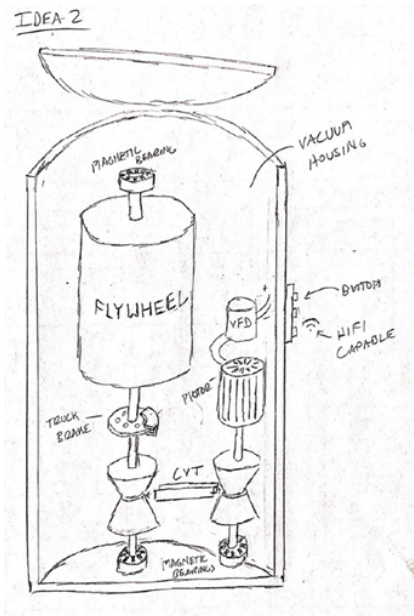 IDEA-2
MAGNETIC
BEARING
VACUUM
HOUSING
FLYWHEEL
VFD
BUTTON
WIFI
CAPABLE
MOTOR
TRUCK
BRAKE
CVT
MAGNETIC
BEARINGS